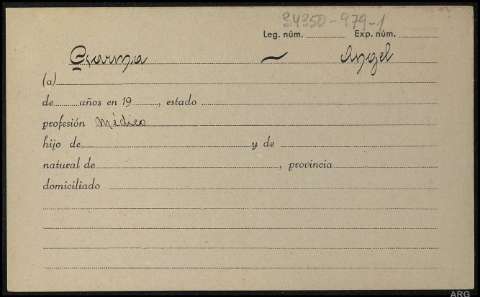 34250-979-1
Leg. núm. Exp. núm.
Garma ~ Angel
(a)
de años en 19 , estado
profesión Médico
hijo de y de
natural de , provincia
domiciliado
ARG